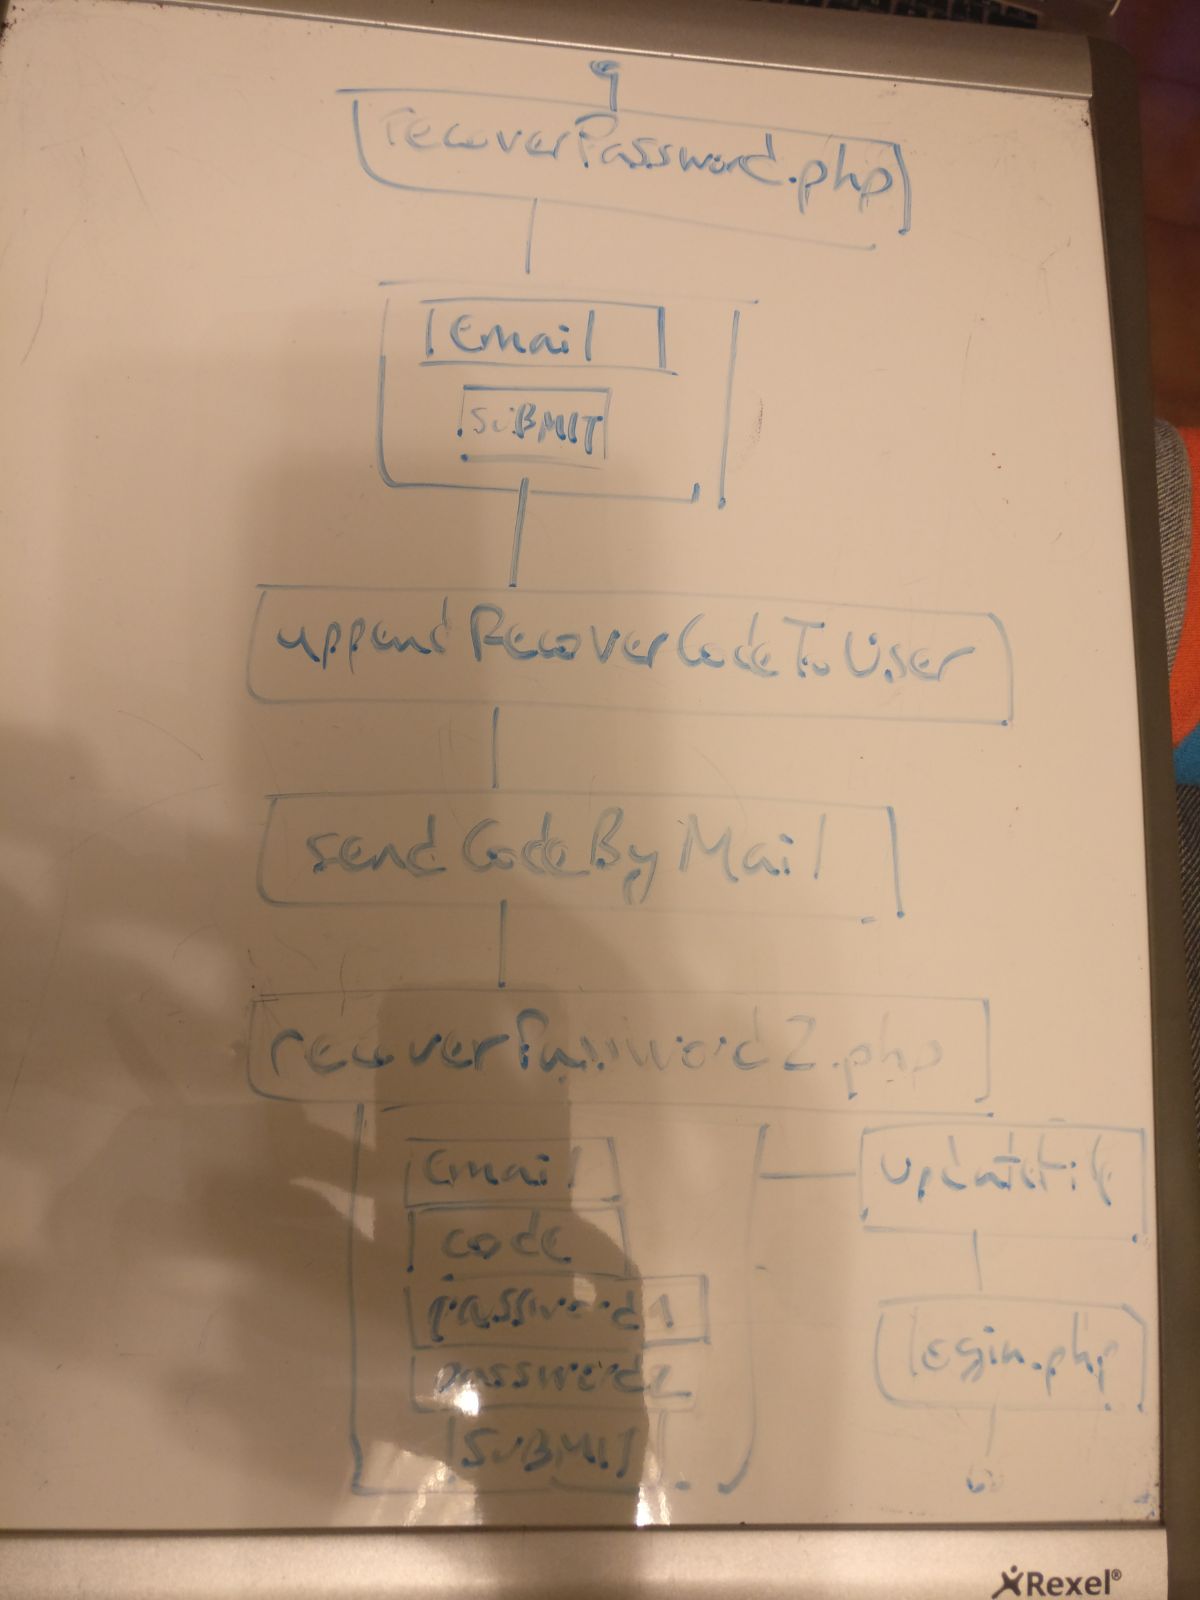 recoverPassword.php
Email
SUBMIT
appendRecoverCodeToUser
sendCodeByMail
recoverPassword2.php
Email
code
password1
password2
SUBMIT
login.php
Rexel®